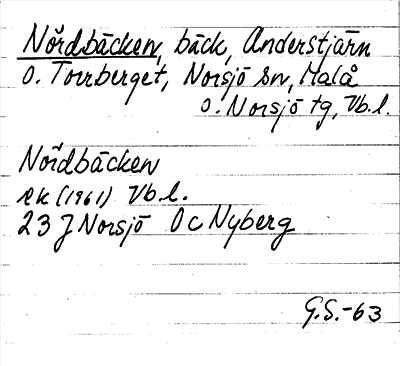 Nördbäcken, bäck, Anderstjärn
o. Torrberget, Norsjö sn, Malå
o. Norsjö tg, Vb.l.
Nördbäcken
rk (1961) Vb.l.
23 J Norsjö Oc Nyberg
G.S.-63